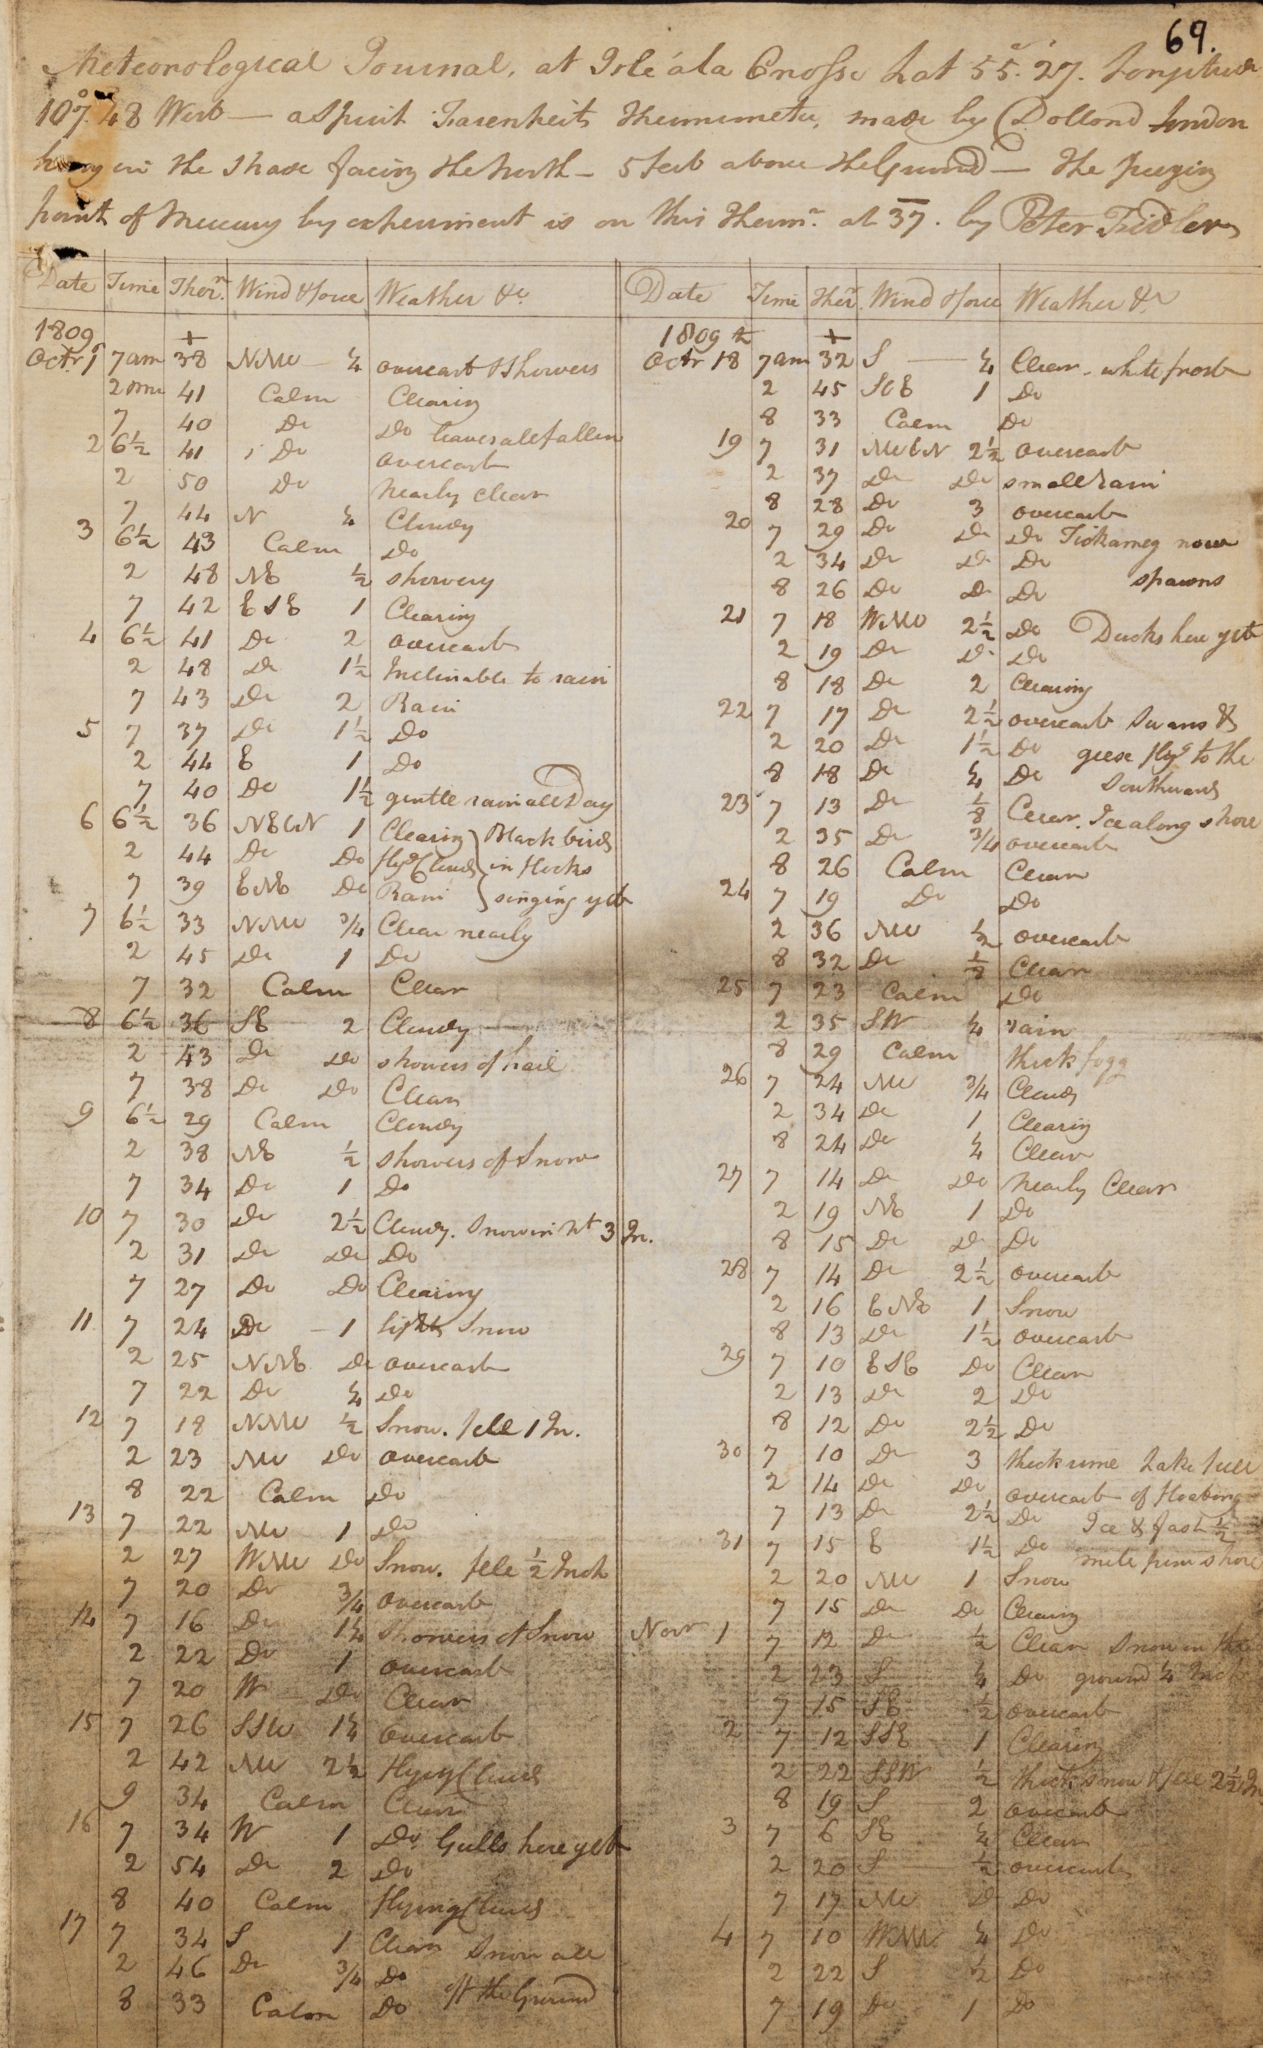 69.
Meteorological Journal, at Isle ála Crosse Lat 55°.27'. Longitude
107°.48 West — a Spirit Farenheits Thermometer, made by Dollond London
hung in the shade facing the North — 5 feet above the Ground — The freezing
point of Mercury by experiment is on this Thermr. at 37. by Peter Fidler
Date Time Therr. Wind & force Weather &c.
1809 +
Octr. 1 7 am 38 NNW ¼ overcast & Showers
2 pm 41 Calm Clearing
7 40 Do Do leaves all fallen
2 6½ 41 Do overcast
2 50 Do nearly clear
7 44 N ¼ Cloudy
3 6½ 43 Calm Do
2 48 NE ½ showery
7 42 ESE 1 Clearing
4 6½ 41 Do 2 overcast
2 48 Do 1½ Inclinable to rain
7 43 Do 2 Rain
5 7 37 Do 1½ Do
2 44 E 1 Do
7 40 Do 1½ gentle rain all Day
6 6½ 36 NEbN 1 Clearing } Black birds
2 44 Do Do flyg Clouds } in flocks
7 39 ENE Do Rain } singing yet
7 6½ 33 NNW ¾ Clear nearly
2 45 Do 1 Do
7 32 Calm Clear
8 6½ 36 SE 2 Cloudy
2 43 Do Do showers of hail
7 38 Do Do Clear
9 6½ 29 Calm Cloudy
2 38 NE ½ showers of Snow
7 34 Do 1 Do
10 7 30 Do 2½ Cloudy. Snow in Nt 3 In.
2 31 Do Do Do
7 27 Do Do Clearing
11 7 24 Do 1 light Snow
2 25 NNE Do overcast
7 22 Do ¼ Do
12 7 18 NNW ½ Snow. fell 1 In.
2 23 NW Do overcast
8 22 Calm Do
13 7 22 NW 1 Do
2 27 WNW Do Snow. fell ½ Inch
7 20 Do ¾ overcast
14 7 16 Do 1¼ Showers of Snow
2 22 Do 1 overcast
7 20 W Do Clear
15 7 26 SSW 1¼ overcast
2 42 NW 2½ Flying Clouds
9 34 Calm Clear
16 7 34 W 1 Do. Gulls here yet
2 54 Do 2 Do
8 40 Calm Flying Clouds
17 7 34 S 1 Clear Snow all
2 46 Do ¾ Do off the Ground
8 33 Calm Do
Date Time Therr. Wind & force Weather &c.
1809 +
Octr 18 7 am 32 S ¼ Clear. white frost
2 45 SbE 1 Do
8 33 Calm Do
19 7 31 NWbN 2½ overcast
2 37 Do Do small rain
8 28 Do 3 overcast
20 7 29 Do Do Do Tickameg now
2 34 Do Do Do
8 26 Do Do Do spawns
21 7 18 WNW 2½ Do Ducks here yet
2 19 Do Do Do
8 18 Do 2 Clearing
22 7 17 Do 2½ overcast Swans &
2 20 Do 1½ Do geese flyg to the
8 18 Do ¼ Do Southward
23 7 13 Do ⅛ Clear. Ice along shore
2 35 Do ¾ overcast
8 26 Calm Clear
24 7 19 Do Do
2 36 NW ½ overcast
8 32 Do ⅛ Clear
25 7 23 Calm Do
2 35 SW ¼ rain
8 29 Calm thick fogg
26 7 24 NW ¾ Cloudy
2 34 Do 1 Clearing
8 24 Do ¼ Clear
27 7 14 Do Do nearly Clear
2 19 NE 1 Do
8 15 Do Do Do
28 7 14 Do 2½ overcast
2 16 ENE 1 Snow
8 13 Do 1½ overcast
29 7 10 ESE Do Clear
2 13 Do 2 Do
8 12 Do 2½ Do
30 7 10 Do 3 thick rime Lake full
2 14 Do Do overcast of floating
7 13 Do 2½ Do Ice & fast ½
31 7 15 E 1½ Do mile from shore
2 20 NW 1 Snow
7 15 Do Do Clearing
Novr 1 7 12 Do ½ Clear Snow on the
2 23 S ¼ Do ground ¼ Inch
7 15 SE ½ overcast
2 7 12 SSE 1 Clearing
2 22 SSW ½ thick snow & fell 2½ In
8 19 S 2 overcast
3 7 6 SE ¼ Clear
2 20 S ½ overcast
7 17 NW Do Do
4 7 10 WNW ¼ Do
2 22 S ½ Do
7 19 Do 1 Do